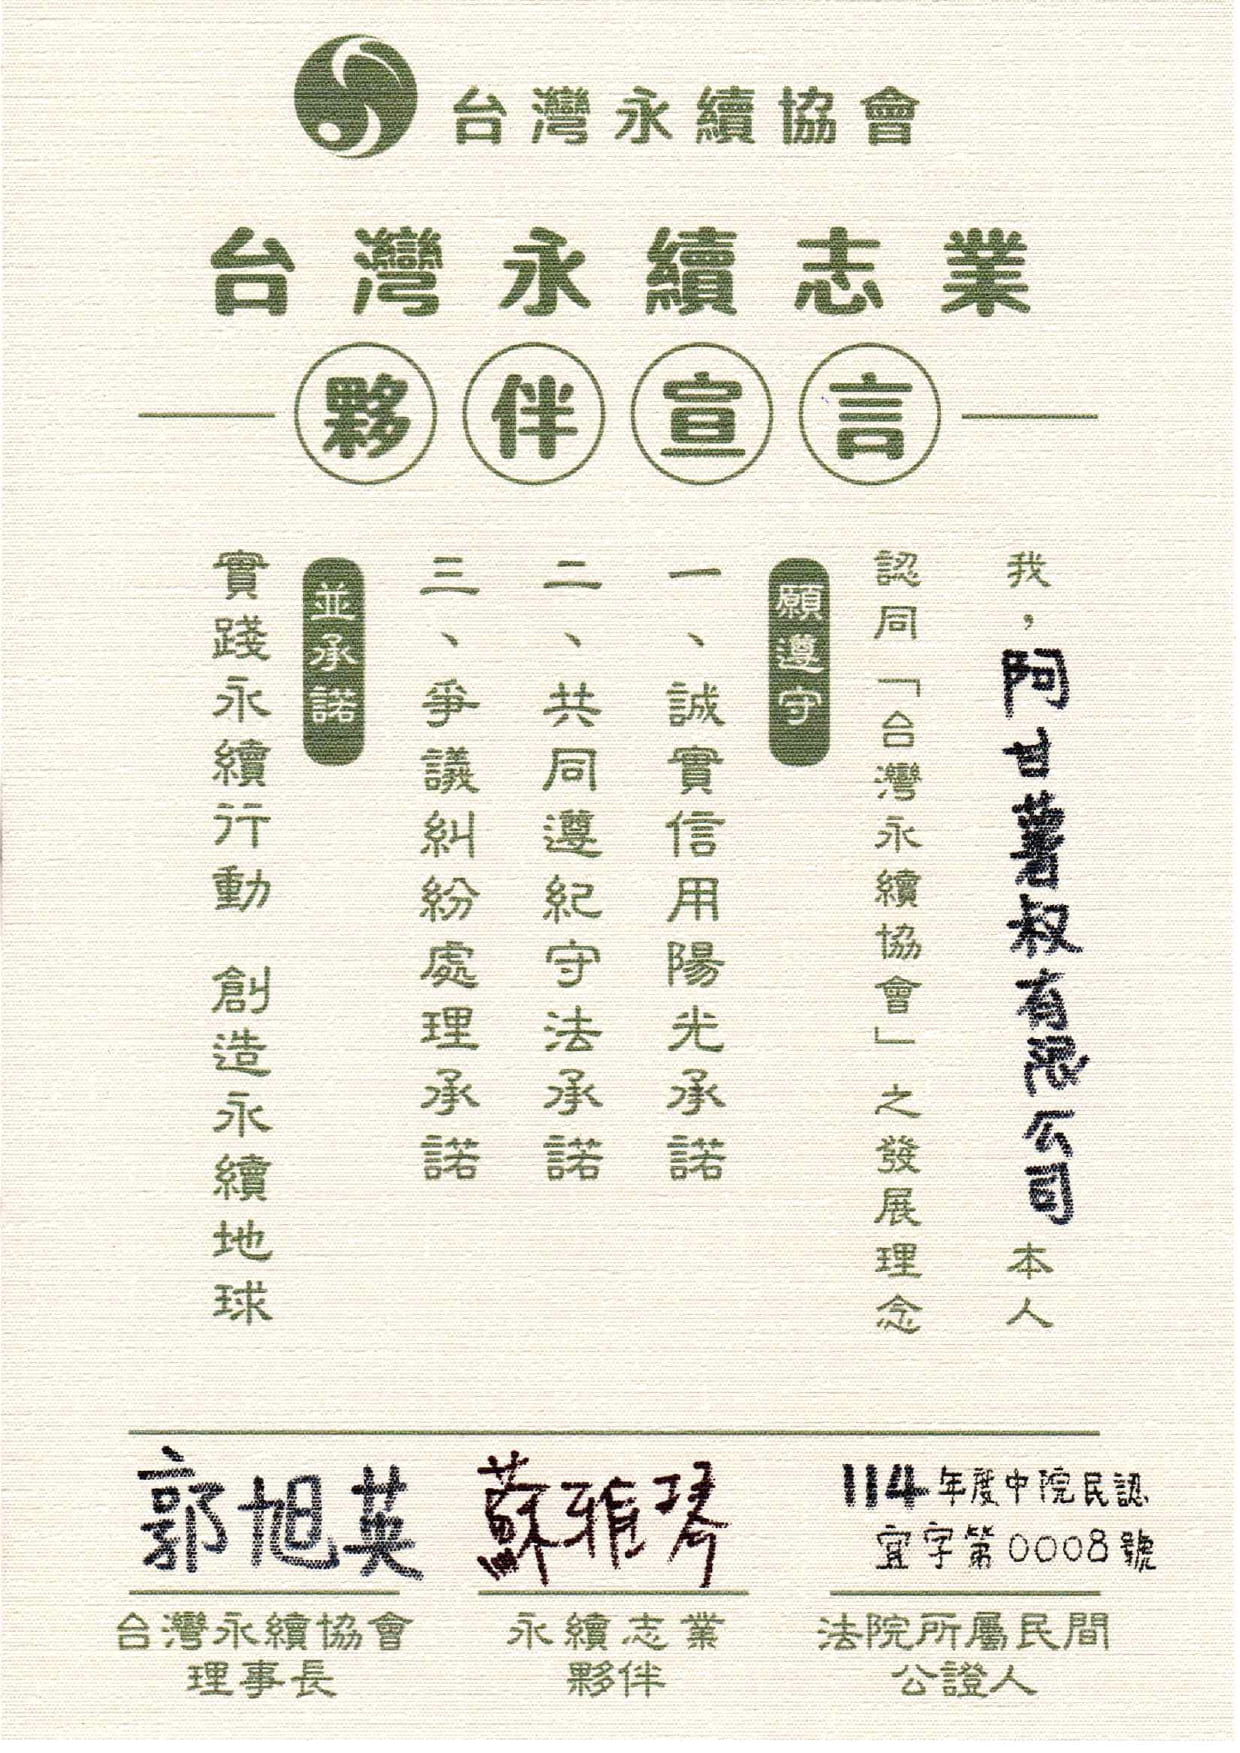 台灣永續協會
台灣永續志業
夥伴宣言
我，阿甘薯叔有限公司本人
認同「台灣永續協會」之發展理念
願遵守
一、誠實信用陽光承諾
二、共同遵紀守法承諾
三、爭議糾紛處理承諾
並承諾
實踐永續行動 創造永續地球
郭旭英
台灣永續協會
理事長
蘇雅琴
永續志業
夥伴
114年度中院民認
宜字第0008號
法院所屬民間
公證人